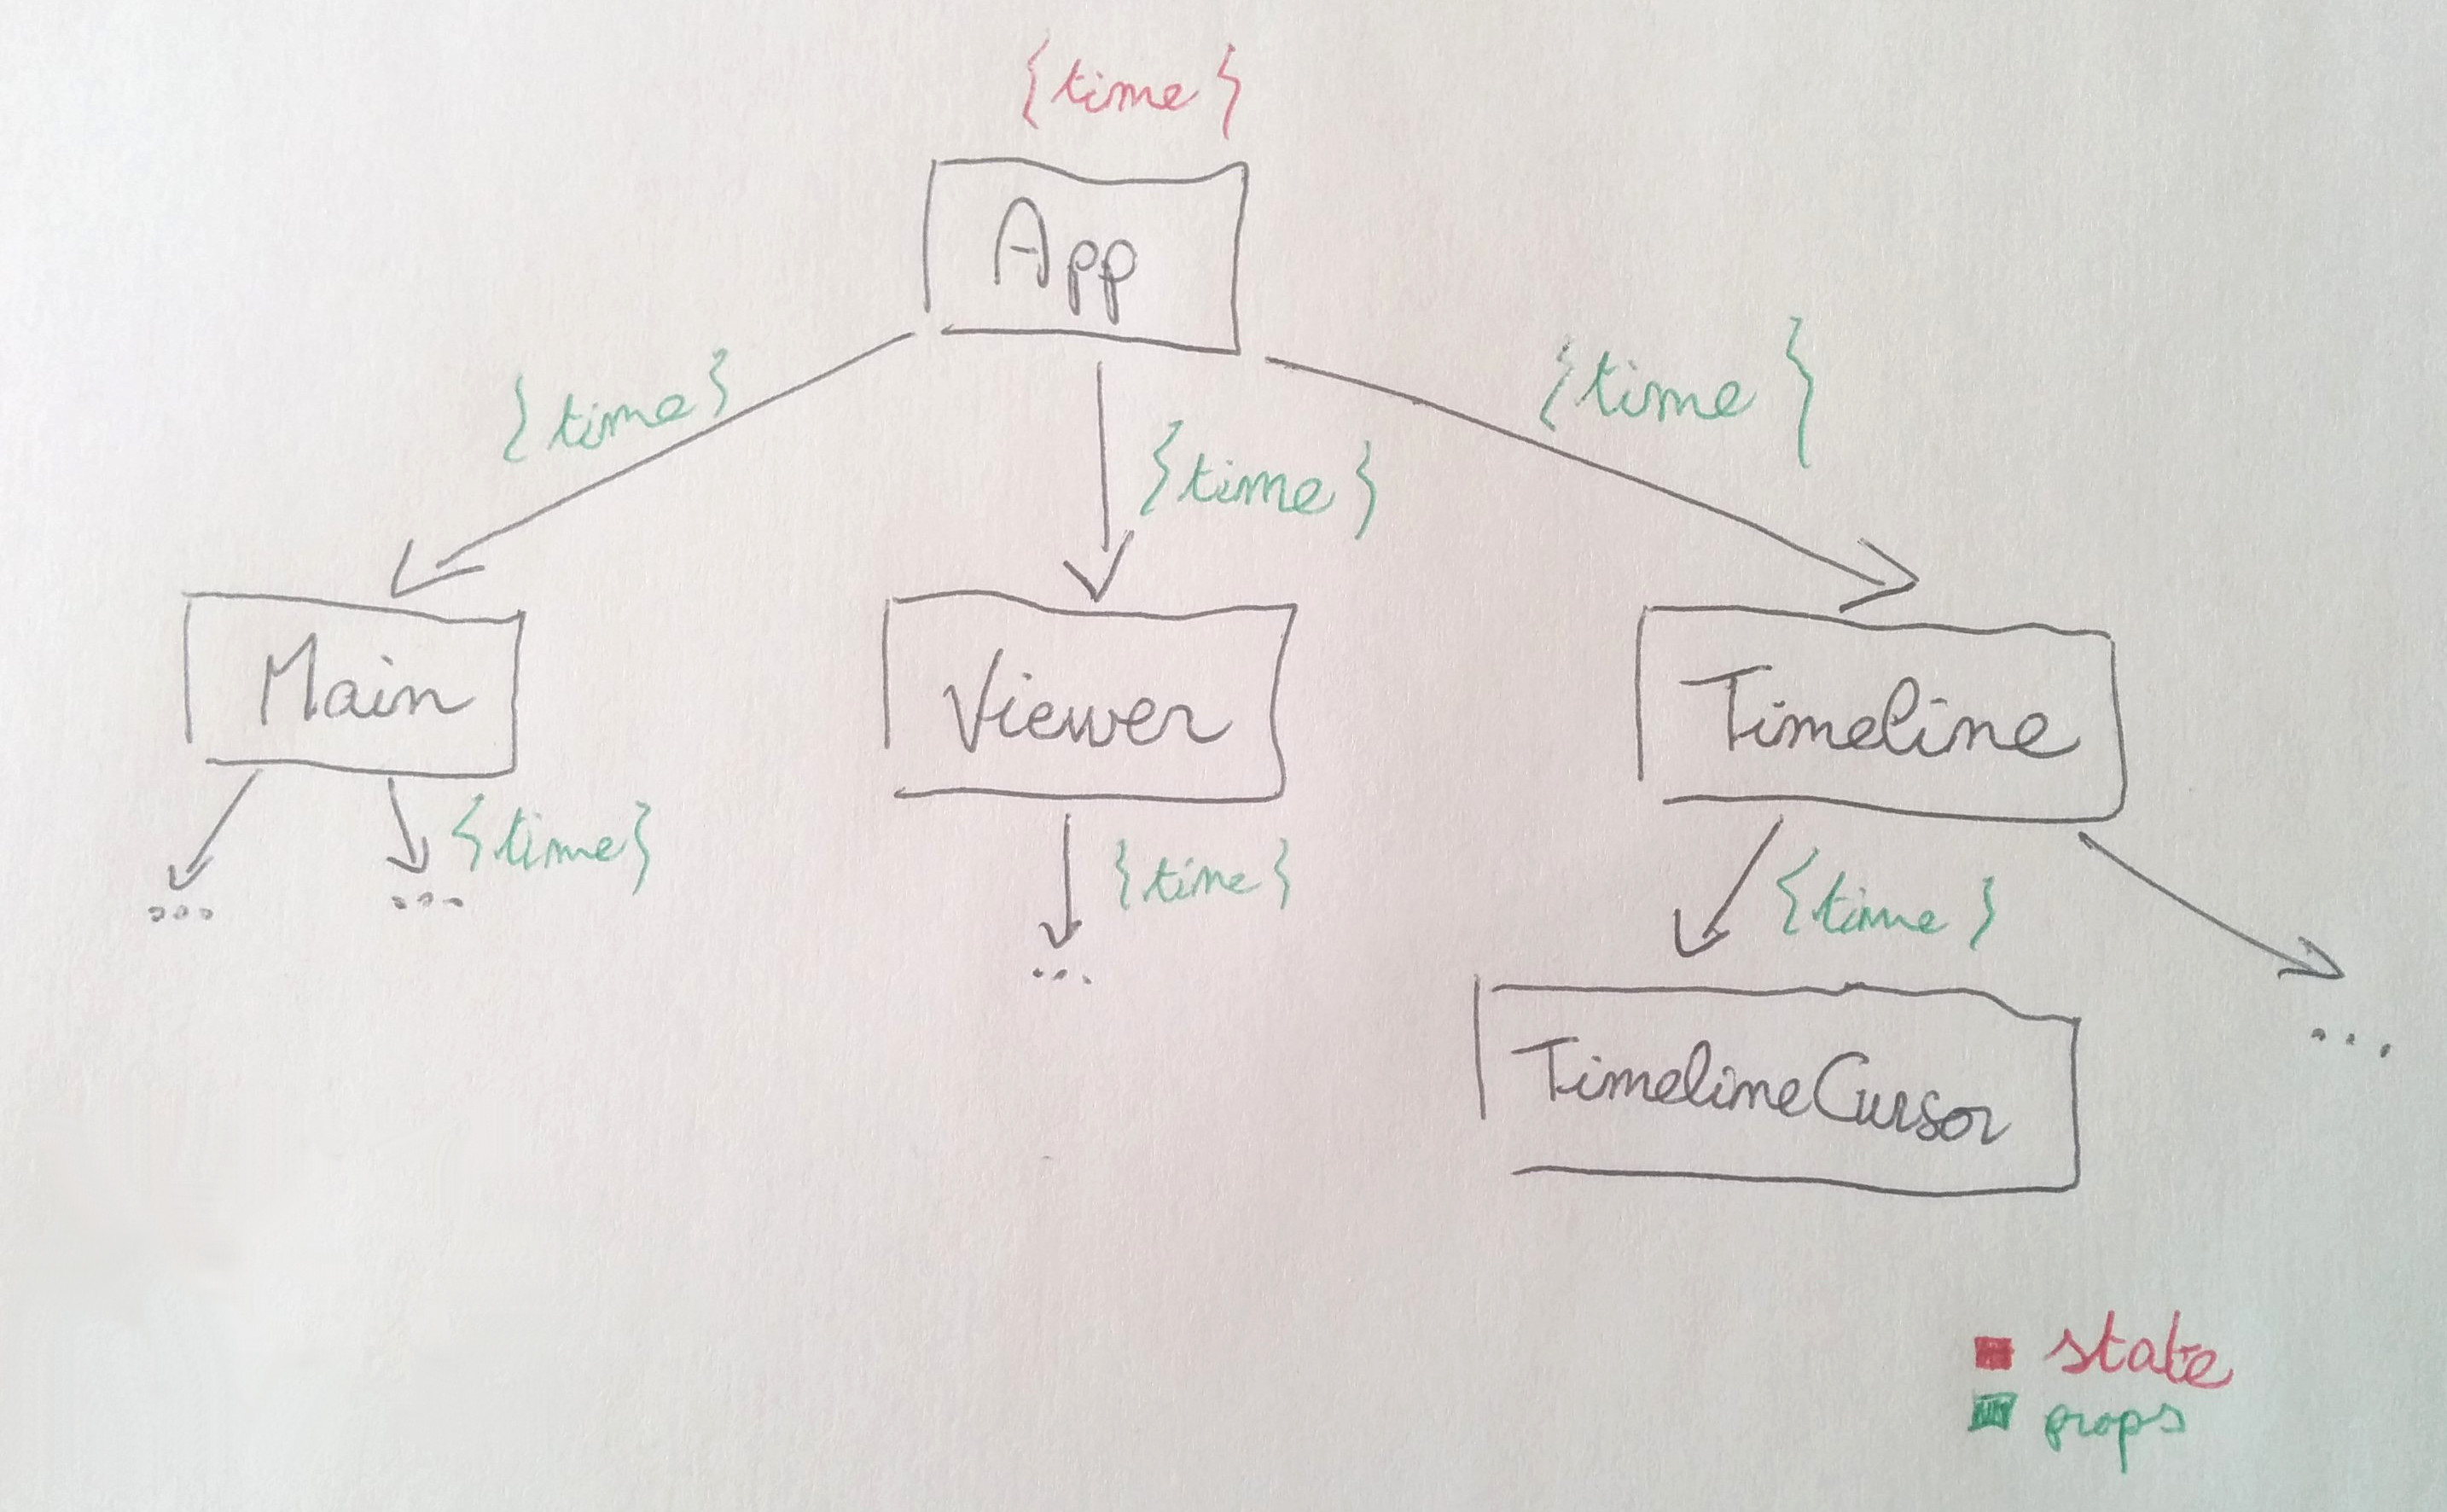 {time}
App
{time}
{time}
{time}
Main
Viewer
Timeline
{time}
{time}
{time}
...
...
...
...
TimelineCursor
state
props